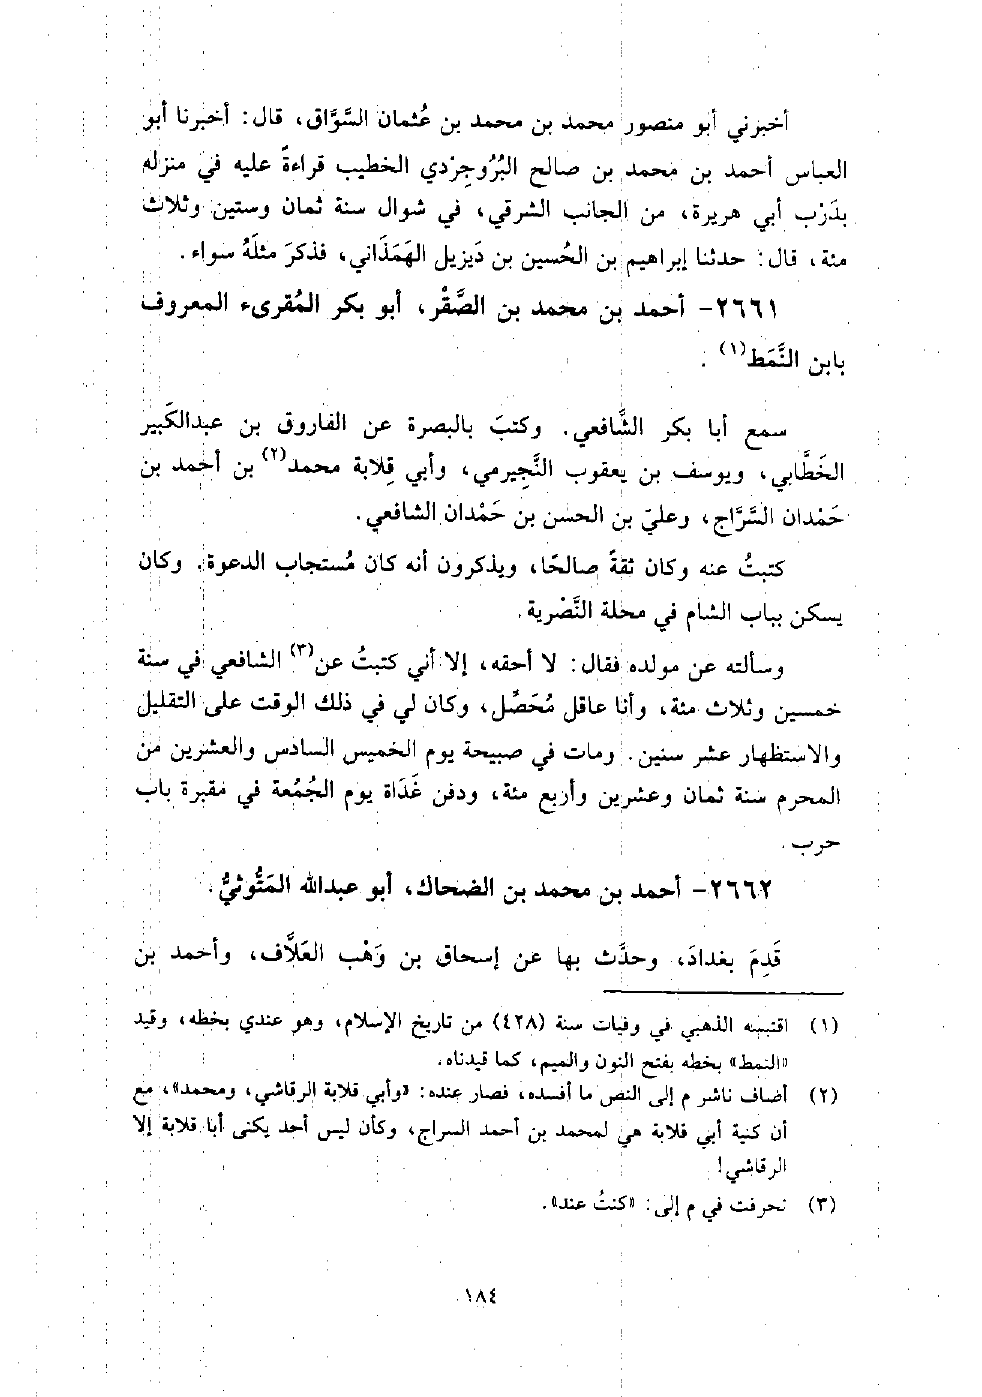 أخبرني أبو منصور محمد بن محمد بن عُثمان السَّوَّاق، قال: أخبرنا أبو
العباس أحمد بن محمد بن صالح البُرُوجِرْدي الخطيب قراءةً عليه في منزله
بدَرْب أبي هريرة، من الجانب الشرقي، في شوال سنة ثمان وستين وثلاث
مئة، قال: حدثنا إبراهيم بن الحُسين بن دَيزيل الهَمَذَاني، فذكرَ مثلَهُ سواء.
٢٦٦١- أحمد بن محمد بن الصَّقْر، أبو بكر المُقرىء المعروف
بابن النَّمَط(١).
سمع أبا بكر الشَّافعي. وكتبَ بالبصرة عن الفاروق بن عبدالكَبير
الخَطَّابي، ويوسف بن يعقوب النَّجِيرمي، وأبي قِلابة محمد(٢) بن أحمد بن
حَمْدان السَّرَّاج، وعلي بن الحسن بن حَمْدان الشافعي.
كتبتُ عنه وكان ثقةً صالحًا، ويذكرون أنه كان مُستجاب الدعوة. وكان
يسكن بباب الشام في محلة النَّصْرية.
وسألته عن مولده فقال: لا أحقه، إلا أني كتبتُ عن(٣) الشافعي في سنة
خمسين وثلاث مئة، وأنا عاقل مُحَصِّل، وكان لي في ذلك الوقت على التقليل
والاستظهار عشر سنين. ومات في صبيحة يوم الخميس السادس والعشرين من
المحرم سنة ثمان وعشرين وأربع مئة، ودفن غَدَاة يوم الجُمُعة في مقبرة باب
حرب.
٢٦٦٢- أحمد بن محمد بن الضحاك، أبو عبدالله المَتُّوثيُّ.
قَدِمَ بغدادَ، وحدَّث بها عن إسحاق بن وَهْب العَلَّاف، وأحمد بن
(١) اقتبسه الذهبي في وفيات سنة (٤٢٨) من تاريخ الإسلام، وهو عندي بخطه، وقيد
«النمط» بخطه بفتح النون والميم، كما قيدناه.
(٢) أضاف ناشر م إلى النص ما أفسده، فصار عنده: «وأبي قلابة الرقاشي، ومحمد»، مع
أن كنية أبي قلابة هي لمحمد بن أحمد السراج، وكأن ليس أحد يكنى أبا قلابة إلا
الرقاشي!
(٣) تحرفت في م إلى: «كنتُ عند».
١٨٤